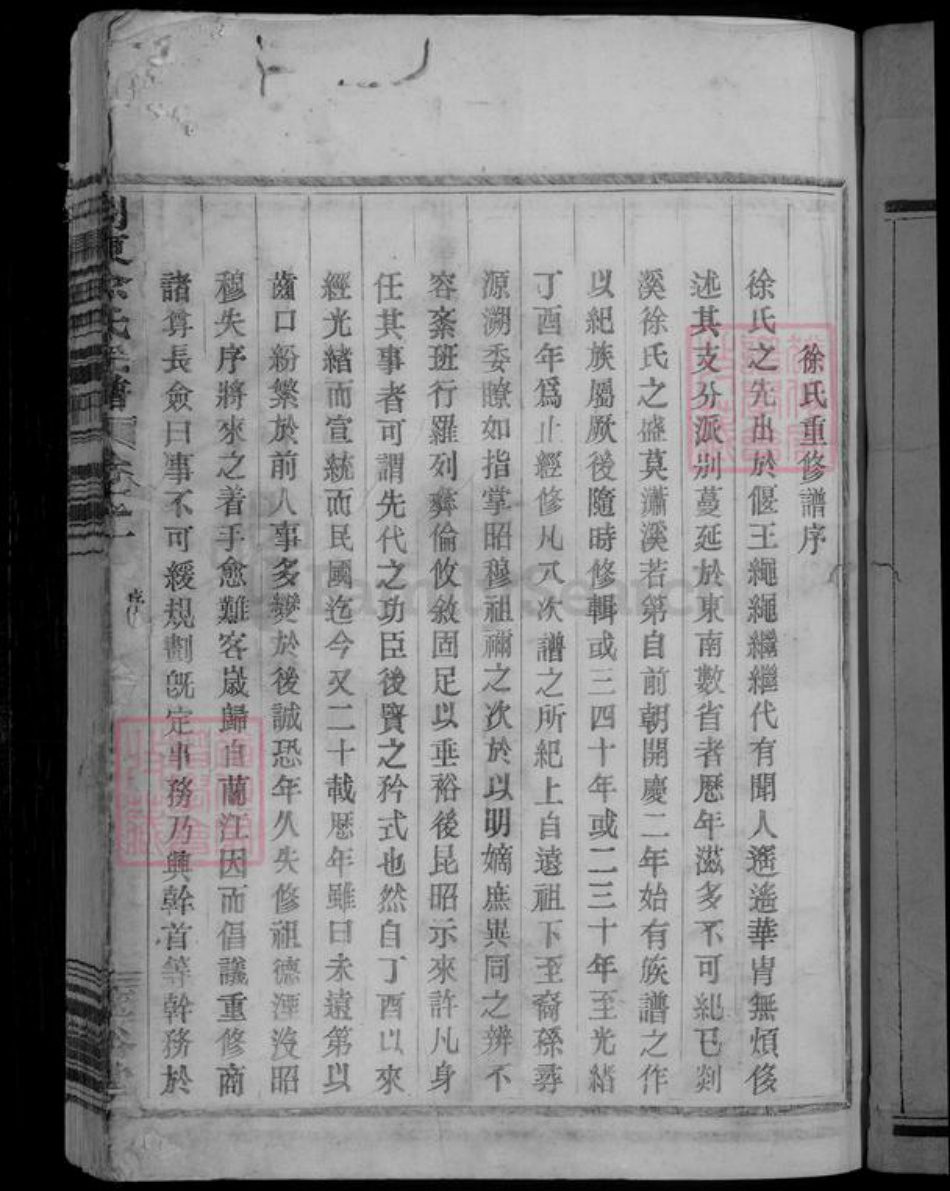 徐氏重修譜序
徐氏之先出於偃王繩繩繼繼代有聞人遙遙華冑無煩後
述其支分派别蔓延於東南數省者歷年滋多不可紀已剡
溪徐氏之盛莫瀟溪若第自前朝開慶二年始有族譜之作
以紀族屬厥後隨時修輯或三四十年或二三十年至光緒
丁酉年爲止經修凡八次譜之所紀上自遠祖下至裔孫尋
源溯委瞭如指掌昭穆祖禰之次於以明嫡庶異同之辨不
容紊班行羅列彝倫攸敘固足以垂裕後昆昭示來許凡身
任其事者可謂先代之功臣後賢之矜式也然自丁酉以來
經光緒而宣統而民國迄今又二十載歷年雖曰未遠第以
齒口紛繁於前人事多變於後誠恐年久失修祖德湮沒昭
穆失序將來之着手愈難客歲歸自蘭江因而倡議重修商
諸尊長僉曰事不可緩規劃旣定事務乃興幹首等幹務於
剡東徐氏宗譜 卷之一
序